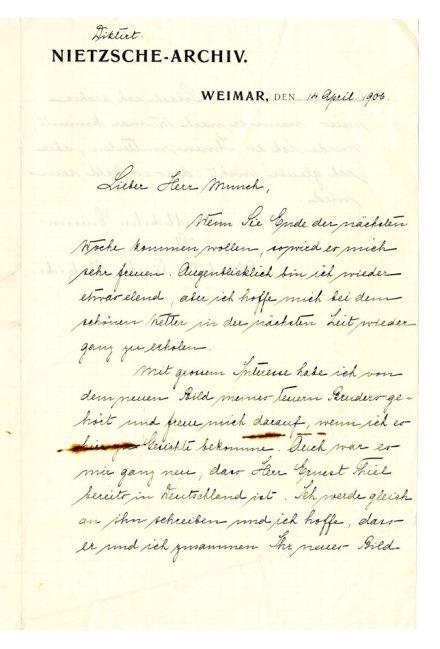 Diktirt.
NIETZSCHE-ARCHIV.
WEIMAR, DEN 14 April 1906.
Lieber Herr Munch,
Wenn Sie Ende der nächsten
Woche kommen wollen, so wird es mich
sehr freuen. Augenblicklich bin ich wieder
etwas elend, aber ich hoffe mich bei dem
schönen Wetter in der nächsten Zeit wieder
ganz zu erholen.
Mit grossem Interesse habe ich von
dem neuen Bild meines teuern Bruders ge-
hört und freue mich darauf, wenn ich es
Gesichte bekomme. Auch war es
mir ganz neu, dass Herr Ernest Thiel
bereits in Deutschland ist. Ich werde gleich
an ihn schreiben und ich hoffe, dass
er und ich zusammen Ihr neues Bild